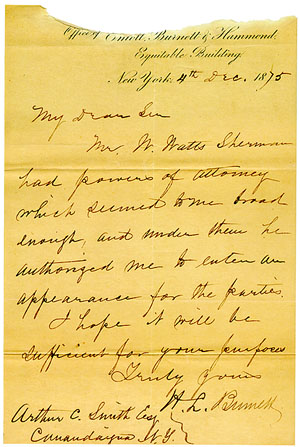 Office of Emott, Burnett & Hammond.
Equitable Building.
New York, 4th Dec. 1875
My Dear Sir
Mr. W. Watts Sherman
had powers of attorney
which seemed to me broad
enough, and under them he
authorized me to enter an
appearance for the parties.
I hope it will be
sufficient for your purposes
Truly yours
H. L. Burnett
Arthur C. Smith Esq
Canandaigua N.Y.